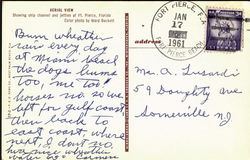 AERIAL VIEW
Showing ship channel and jetties at Ft. Pierce, Florida
Color photo by Ward Beckett
Bum wheather
rain every day
at Miami beach
the dogs bums
too, me too
horses no so we
left for gulf coast
then back to
east coast, where
next, I dont no
was nice wheather
address
FORT PIERCE, FLA.
JAN
17
1961
Mr. A. Lusardi
59 Doughty ave
Somerville NJ